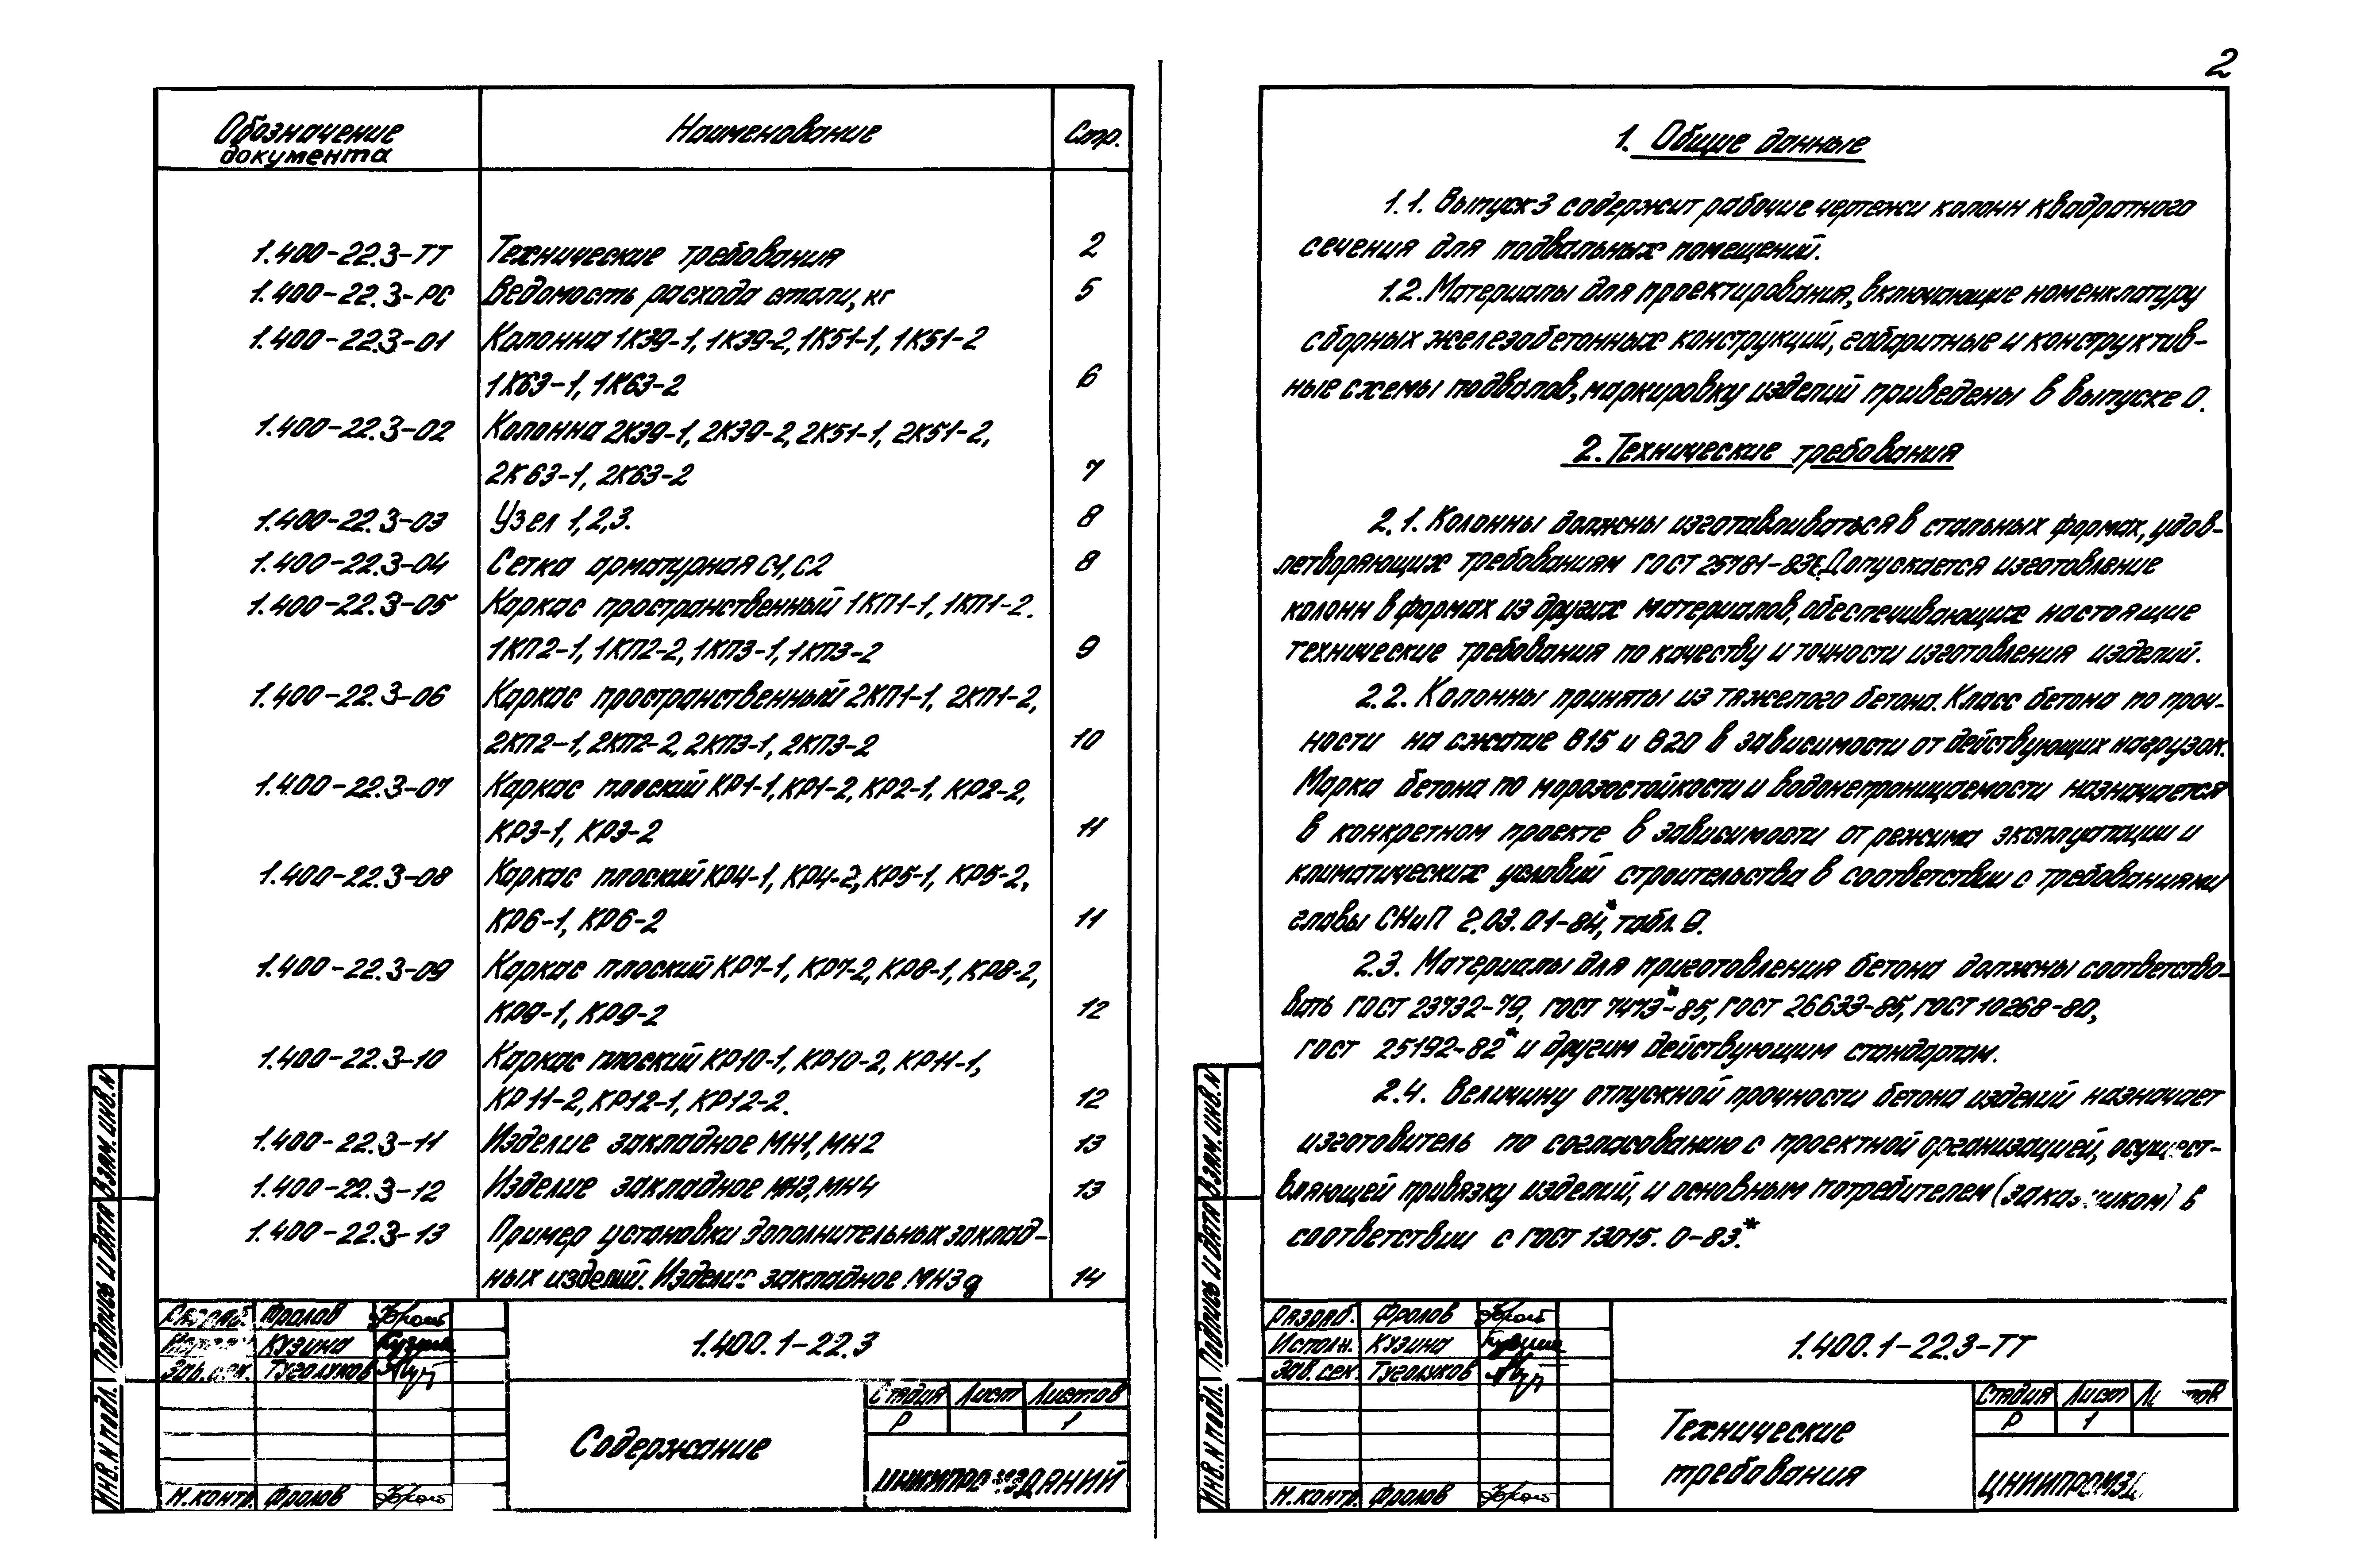 2
Обозначение документа Наименование Стр.
1.400-22.3-ТТ Технические требования 2
1.400-22.3-РС Ведомость расхода стали, кг 5
1.400-22.3-01 Колонна 1К39-1, 1К39-2, 1К51-1, 1К51-2
1К63-1, 1К63-2 6
1.400-22.3-02 Колонна 2К39-1, 2К39-2, 2К51-1, 2К51-2,
2К63-1, 2К63-2 7
1.400-22.3-03 Узел 1,2,3. 8
1.400-22.3-04 Сетка арматурная С1, С2 8
1.400-22.3-05 Каркас пространственный 1КП1-1, 1КП1-2.
1КП2-1, 1КП2-2, 1КП3-1, 1КП3-2 9
1.400-22.3-06 Каркас пространственный 2КП1-1, 2КП1-2,
2КП2-1, 2КП2-2, 2КП3-1, 2КП3-2 10
1.400-22.3-07 Каркас плоский КР1-1, КР1-2, КР2-1, КР2-2,
КР3-1, КР3-2 11
1.400-22.3-08 Каркас плоский КР4-1, КР4-2, КР5-1, КР5-2,
КР6-1, КР6-2 11
1.400-22.3-09 Каркас плоский КР7-1, КР7-2, КР8-1, КР8-2,
КР9-1, КР9-2 12
1.400-22.3-10 Каркас плоский КР10-1, КР10-2, КР11-1,
КР11-2, КР12-1, КР12-2. 12
1.400-22.3-11 Изделие закладное МН1, МН2 13
1.400-22.3-12 Изделие закладное МН3, МН4 13
1.400-22.3-13 Пример установки дополнительных заклад-
ных изделий. Изделие закладное МН3д 14
Инв. N подл. Подпись и дата Взам. инв. N
Разраб. Фролов
Кузина
Зав. сек. Туголуков
Н. контр. Фролов
1.400.1-22.3
Содержание
Стадия Лист Листов
Р 1
ЦНИИПРОМЗДАНИЙ
1. Общие данные
1.1. Выпуск 3 содержит рабочие чертежи колонн квадратного
сечения для подвальных помещений.
1.2. Материалы для проектирования, включающие номенклатуру
сборных железобетонных конструкций, габаритные и конструктив-
ные схемы подвалов, маркировку изделий приведены в выпуске 0.
2. Технические требования
2.1. Колонны должны изготавливаться в стальных формах, удов-
летворяющих требованиям ГОСТ 25781-83Е. Допускается изготовление
колонн в формах из других материалов, обеспечивающих настоящие
технические требования по качеству и точности изготовления изделий.
2.2. Колонны приняты из тяжелого бетона. Класс бетона по проч-
ности на сжатие В15 и В20 в зависимости от действующих нагрузок.
Марка бетона по морозостойкости и водонепроницаемости назначается
в конкретном проекте в зависимости от режима эксплуатации и
климатических условий строительства в соответствии с требованиями
главы СНиП 2.03.01-84*, табл. 9.
2.3. Материалы для приготовления бетона должны соответство-
вать ГОСТ 23732-79, ГОСТ 7473*-85, ГОСТ 26633-85, ГОСТ 10268-80,
ГОСТ 25192-82* и другим действующим стандартам.
2.4. Величину отпускной прочности бетона изделий назначает
изготовитель по согласованию с проектной организацией, осущест-
вляющей привязку изделий, и основным потребителем (заказчиком) в
соответствии с ГОСТ 13015.0-83.*
Инв. N подл. Подпись и дата Взам. инв. N
Разраб. Фролов
Исполн. Кузина
Зав. сек. Туголуков
Н. контр. Фролов
1.400.1-22.3-ТТ
Технические
требования
Стадия Лист Листов
Р 1
ЦНИИПРОМЗД